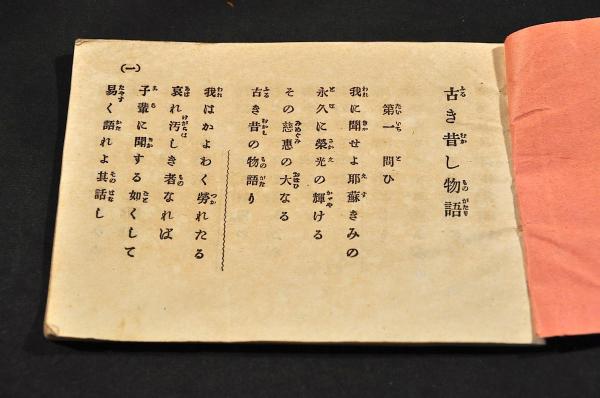 古き昔し物語
第一 問ひ
我に聞せよ耶蘇きみの
永久に榮光の輝ける
その慈惠の大なる
古き昔の物語り
我はかよわく勞れたる
哀れ汚しき者なれば
子輩に聞する如くして
易く語れよ其話し
(一)